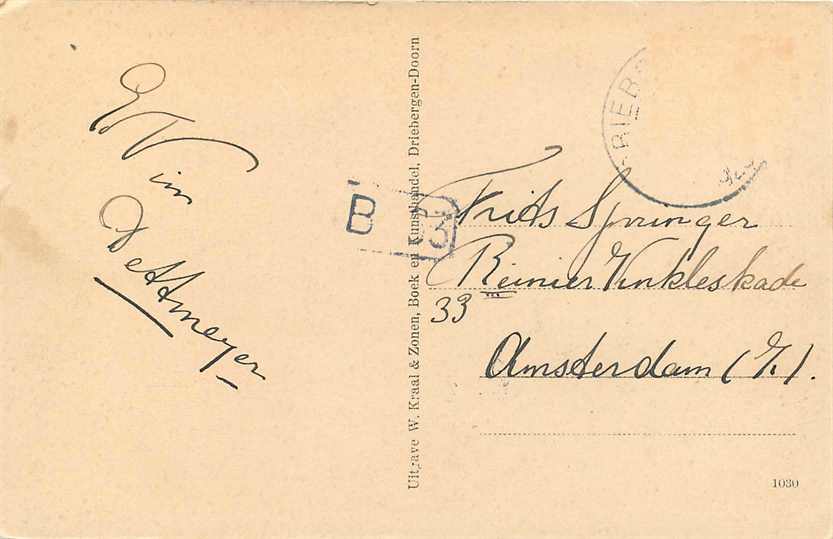 Wim
Dettmeyer
Uitgave W. Kraal & Zonen, Boek en Kunsthandel, Driebergen-Doorn
RIEB
B 3
Frits Springer
Reinier Vinkleskade
33
Amsterdam (Z.).
1030